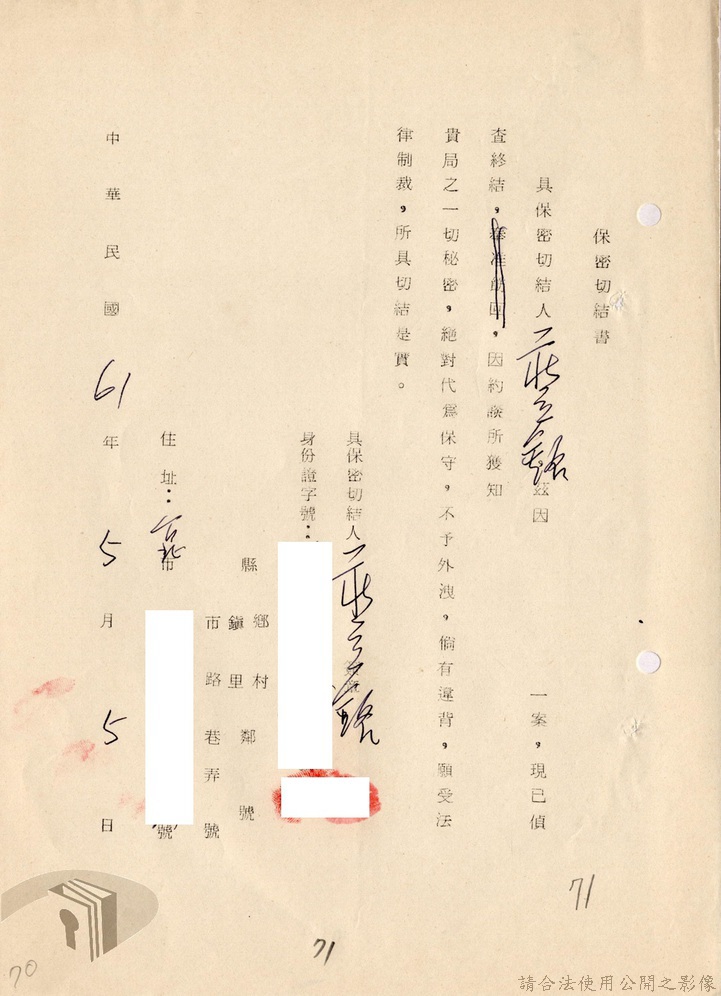 保密切結書
具保密切結人 茲因 一案，現已偵
查終結，，因約談所獲知
貴局之一切秘密，絕對代爲保守，不予外洩，倘有違背，願受法
律制裁，所具切結是實。
具保密切結人
身份證字號：
縣 鄉 村 鄰 號
鎮 里
市 路 巷 弄 號
住址：台北市 號
中華民國61年5月5日
71
71
70
請合法使用公開之影像